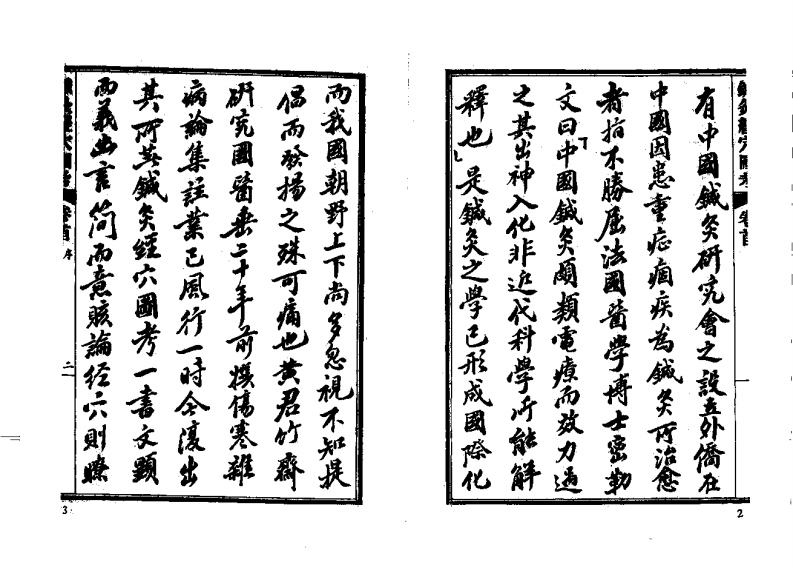 鍼灸經穴圖考 卷首
一
有中國鍼灸研究會之設立外僑在
中國因患重症痼疾為鍼灸所治愈
者指不勝屈法國醫學博士密勒
文曰「中國鍼灸頗類電療而效力過
之其出神入化非近代科學所能解
釋也」是鍼灸之學已形成國際化
2
而我國朝野上下尚多忽視不知提
倡而發揚之殊可痛也黃君竹齋
研究國醫垂二十年前撰傷寒雜
病論集註業已風行一時今復出
其所著鍼灸經穴圖考一書文顯
而義幽言簡而意賅論經穴則瞭
鍼灸經穴圖考 卷首 序
二
3